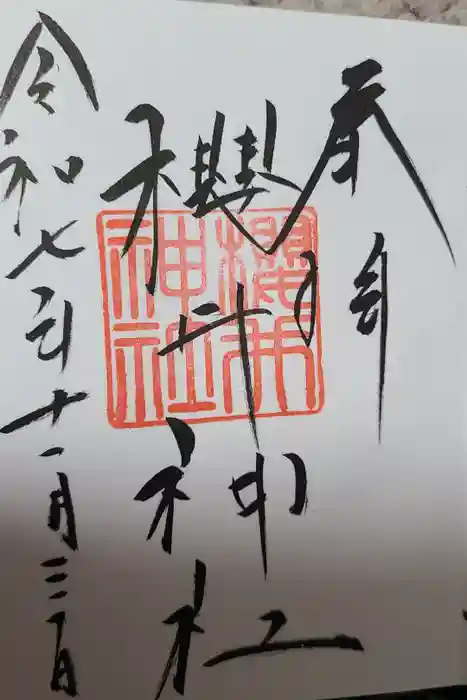 奉拝
櫻井神社
櫻井神社
令和七年十一月三日